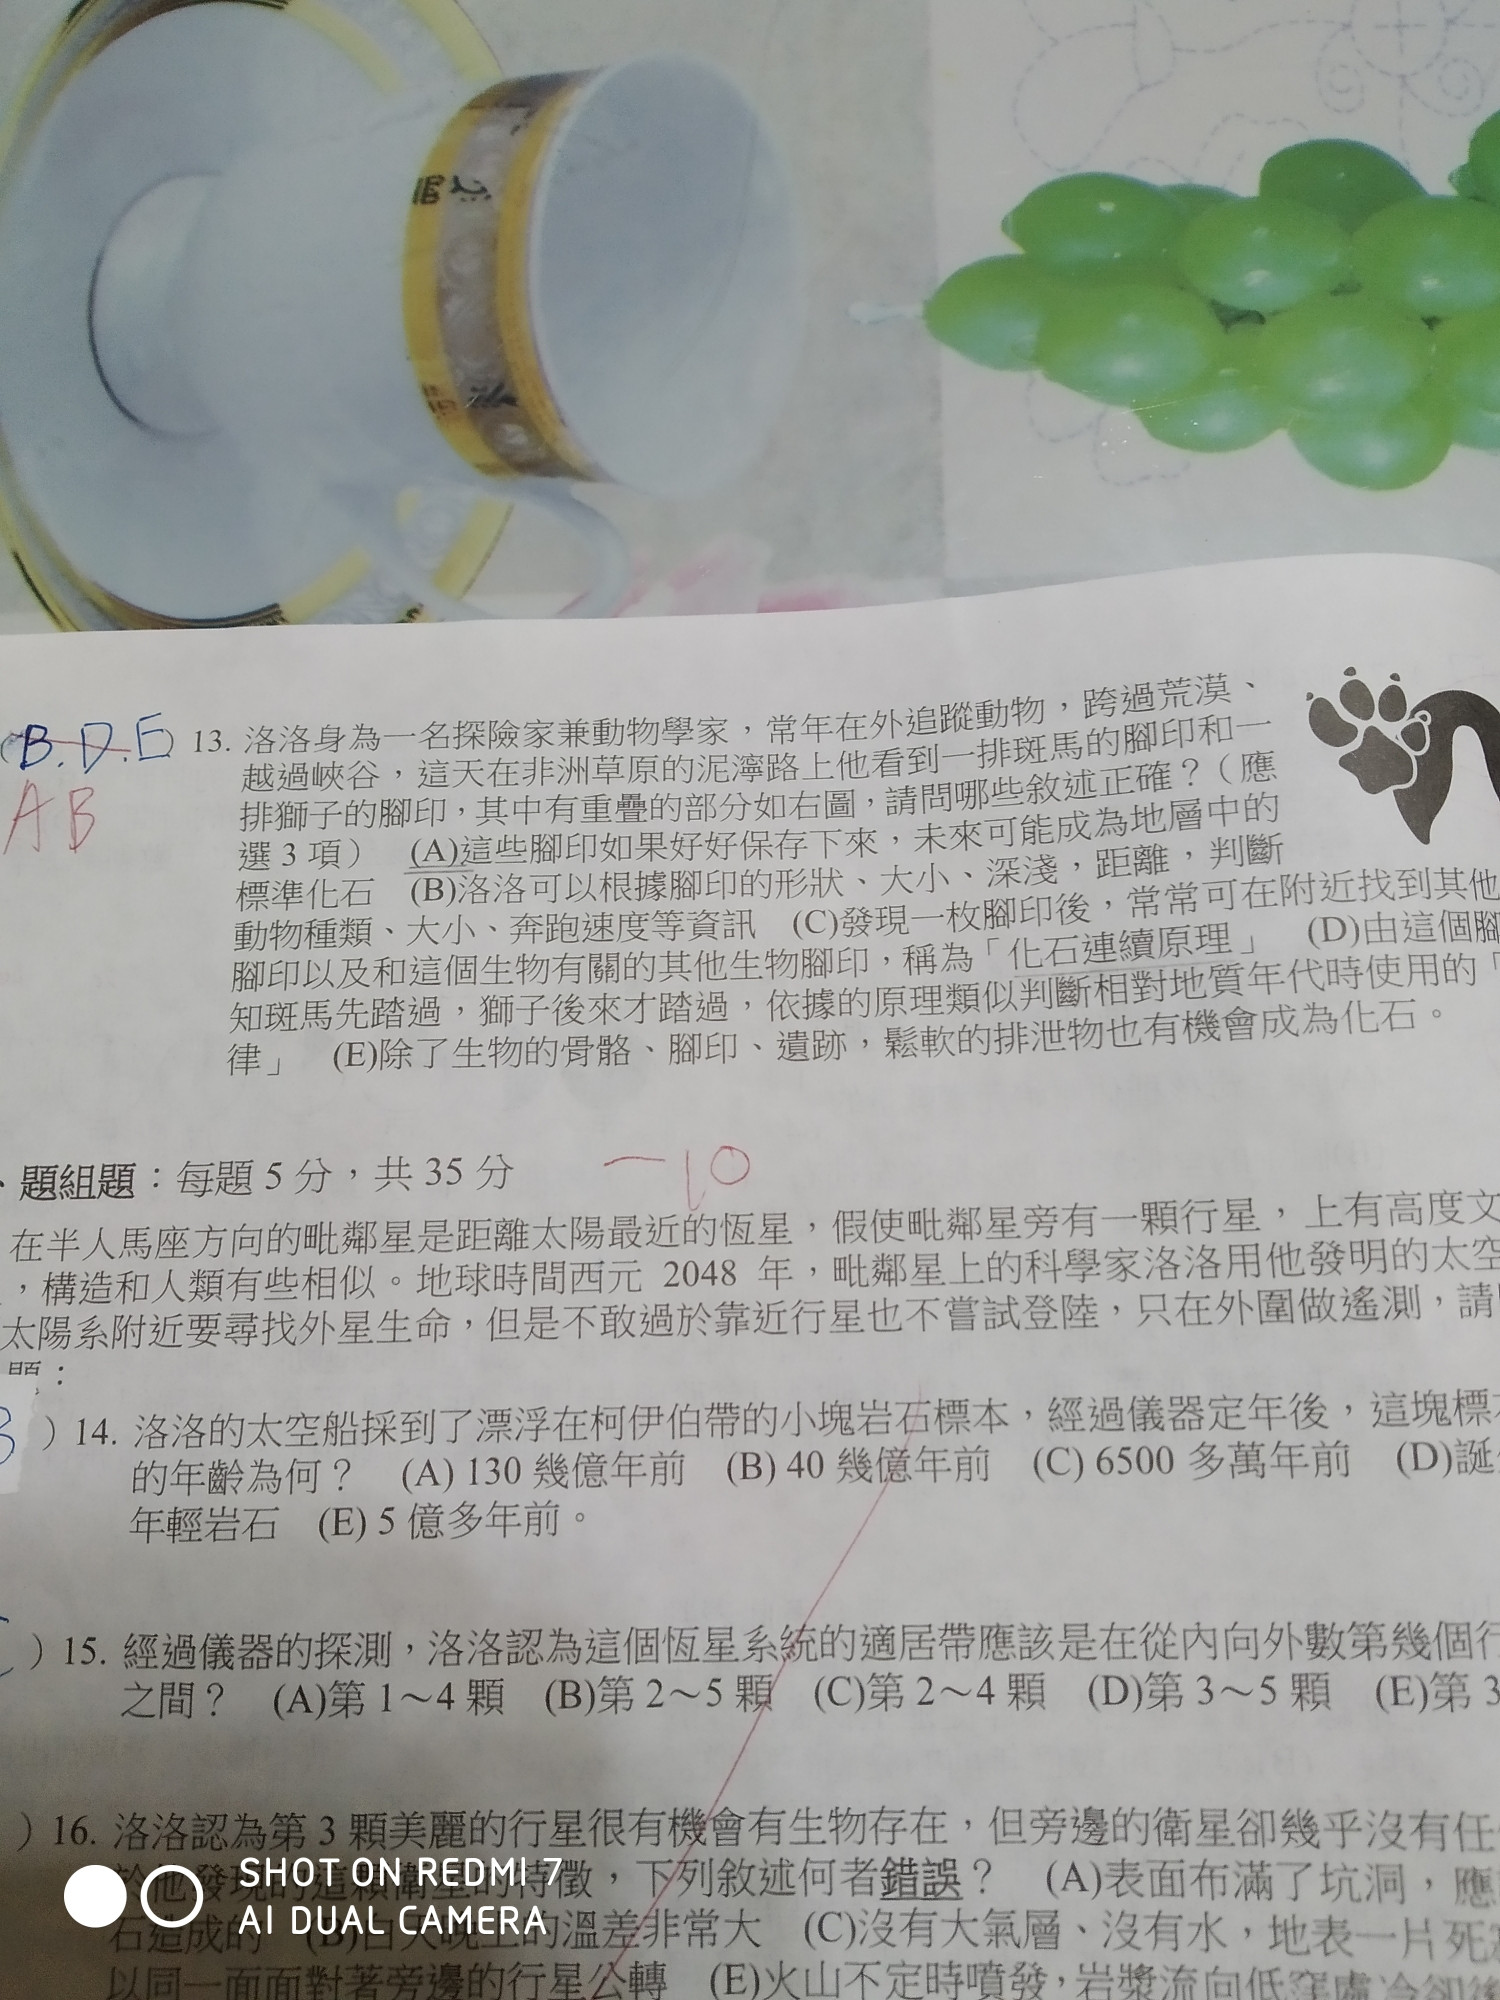 B.D.E) 13. 洛洛身為一名探險家兼動物學家，常年在外追蹤動物，跨過荒漠、
AB
越過峽谷，這天在非洲草原的泥濘路上他看到一排斑馬的腳印和一
排獅子的腳印，其中有重疊的部分如右圖，請問哪些敘述正確？（應
選 3 項） (A)這些腳印如果好好保存下來，未來可能成為地層中的
標準化石 (B)洛洛可以根據腳印的形狀、大小、深淺，距離，判斷
動物種類、大小、奔跑速度等資訊 (C)發現一枚腳印後，常常可在附近找到其他
腳印以及和這個生物有關的其他生物腳印，稱為「化石連續原理」 (D)由這個腳
知斑馬先踏過，獅子後來才踏過，依據的原理類似判斷相對地質年代時使用的「
律」 (E)除了生物的骨骼、腳印、遺跡，鬆軟的排泄物也有機會成為化石。
、題組題：每題 5 分，共 35 分 -10
在半人馬座方向的毗鄰星是距離太陽最近的恆星，假使毗鄰星旁有一顆行星，上有高度文
，構造和人類有些相似。地球時間西元 2048 年，毗鄰星上的科學家洛洛用他發明的太空
太陽系附近要尋找外星生命，但是不敢過於靠近行星也不嘗試登陸，只在外圍做遙測，請
題：
) 14. 洛洛的太空船採到了漂浮在柯伊伯帶的小塊岩石標本，經過儀器定年後，這塊標
的年齡為何？ (A) 130 幾億年前 (B) 40 幾億年前 (C) 6500 多萬年前 (D)誕
年輕岩石 (E) 5 億多年前。
) 15. 經過儀器的探測，洛洛認為這個恆星系統的適居帶應該是在從內向外數第幾個行
之間？ (A)第 1～4 顆 (B)第 2～5 顆 (C)第 2～4 顆 (D)第 3～5 顆 (E)第 3
) 16. 洛洛認為第 3 顆美麗的行星很有機會有生物存在，但旁邊的衛星卻幾乎沒有任
於他發現的這顆衛星的特徵，下列敘述何者錯誤？ (A)表面布滿了坑洞，應
石造成的 (B)白天晚上的溫差非常大 (C)沒有大氣層、沒有水，地表一片死
以同一面面對著旁邊的行星公轉 (E)火山不定時噴發，岩漿流向低窪處冷卻後
SHOT ON REDMI 7
AI DUAL CAMERA